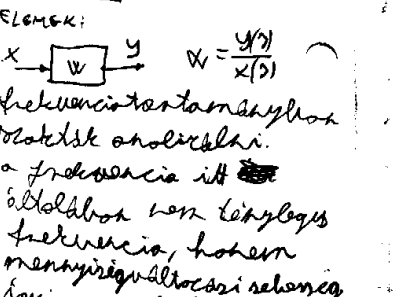 ELEMEK:
x W y W = y(s)/x(s)
frekvenciatartományban
szokták analizálni.
a frekvencia itt
általában nem tényleges
frekvencia, hanem
mennyiségváltozási sebesség